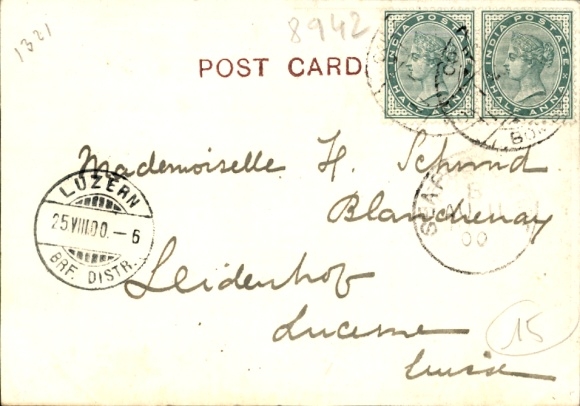 1321
8942
POST CARD
INDIA POSTAGE
HALF ANNA
INDIA POSTAGE
HALF ANNA
Mademoiselle H. Schmid
Blanchenay
LUZERN
25.VIII.00.–6
BRF. DISTR.
00
Seidenhof
Lucerne
Suisse
15